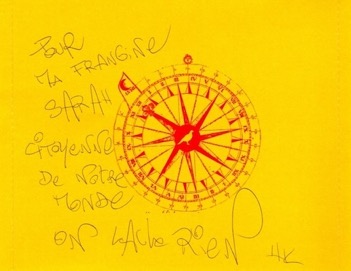 POUR
MA FRANGINE
SARAH
CITOYENNE
DE NOTRE
MONDE
ON LACHE RIEN
HK